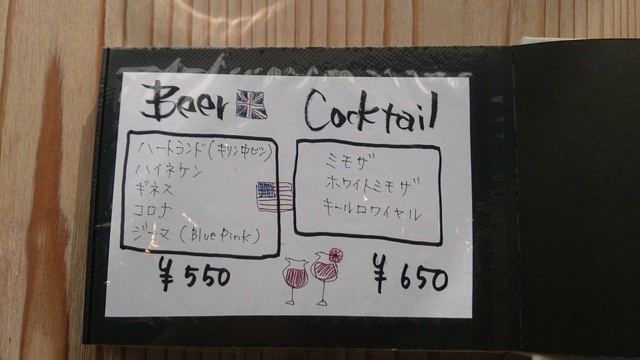 Beer
ハートランド(キリン中ビン)
ハイネケン
ギネス
コロナ
ジーマ (Blue Pink)
¥550
Cocktail
ミモザ
ホワイトミモザ
キールロワイヤル
¥650